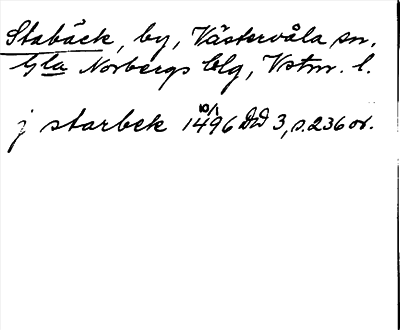 Stabäck, by, Västervåla sn,
Gla Norbergs blg, Vstm. l.
j starbek 10/1 1496 DD 3, s. 236 or.